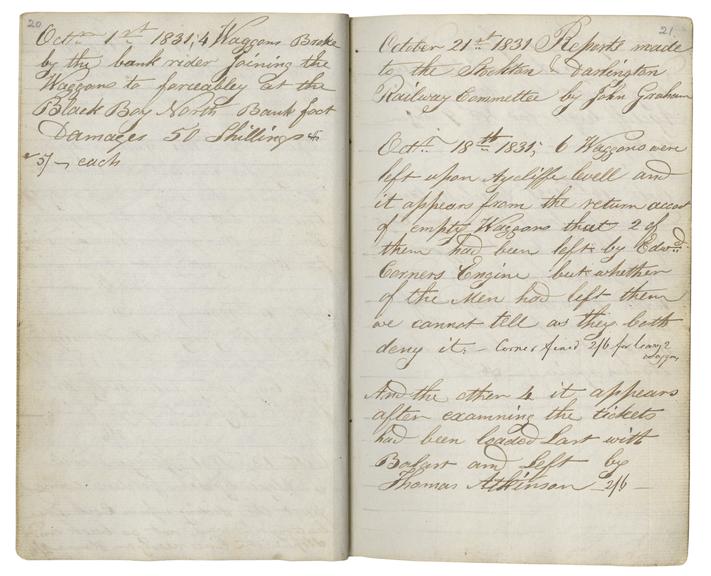 20
Octr. 1st 1831; 4 Waggons Broke
by the bank rider joining the
Waggons to forceabley at the
Black Boy North Bank foot
Damages 50 Shillings
5/- each
21
October 21st 1831 Reports made
to the Stockton & Darlington
Railway Committee by John Graham
Octr. 18th 1831; 6 Waggons were
left upon Aycliffe levell and
it appears from the return accot
of empty Waggons that 2 of
them had been left by Edwd.
Corners Engine but whether
of the Men had left them
we cannot tell as they both
deny it; - Corner fined 2/6 for leavg 2
waggons
And the other 4 it appears
after examning the tickets
had been loaded Last with
Balast and Left by
Thomas Atkinson - 2/6 -